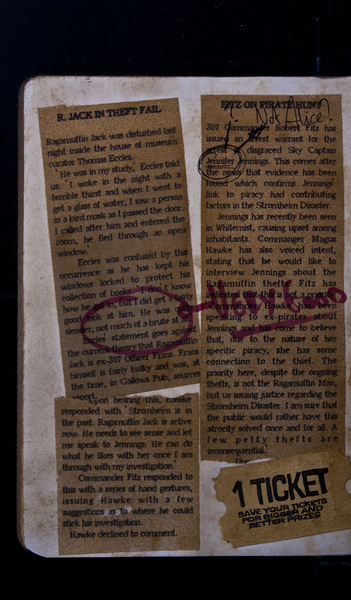 R. JACK IN THEFT FAIL
Ragamuffin Jack was disturbed last
night inside the house of museum
curator Thomas Eccles.
'He was in my study,' Eccles told
us. 'I woke in the night with a
terrible thirst and when I went to
get a glass of water, I saw a person
in a bird mask as I passed the door.
I called after him and entered the
room, he fled through an open
window.'
Eccles was confused by this
occurrence as he has kept his
windows locked to protect his
collection of
how he
good look at him. He was
slender, not much of a brute at
Eccles' statement goes against
the current theory that Ragamuffin
Jack is ex-307 Officer Franz. Franz
himself is fairly bulky and was, at
the time, in Gallows Pub, sources
report.
Upon hearing this, Hawke
responded with 'Stromheim is in
the past. Ragamuffin Jack is active
now. He needs to see sense and let
me speak to Jennings. He can do
what he likes with her once I am
through with my investigation.'
Commander Fitz responded to
this with a series of hand gestures,
issuing Hawke with a few
suggestions as to where he could
stick his investigation.
Hawke declined to comment.
FITZ ON PIRATE HUNT
? Not Alice?
307 Commander Robert Fitz has
issued an arrest warrant for the
disgraced Sky Captain
Jennifer Jennings. This comes after
the news that evidence has been
found which confirms Jennings'
link to piracy had contributed
factors in the Stromheim Disaster.
Jennings has recently been seen
in Whitemist, causing upset among
inhabitants. Commander Magus
Hawke has also voiced intent,
stating that he would like to
interview Jennings about the
Ragamuffin thefts. Fitz has
speaking to ex-pirates about
Jennings and come to believe
that, due to the nature of her
specific piracy, she has some
connection to the thief. The
priority here, despite the ongoing
thefts, is not the Ragamuffin Man,
but us issuing justice regarding the
Stromheim Disaster. I am sure that
the public would rather have this
atrocity solved once and for all. A
few petty thefts are
inconsequential.'
1 TICKET
SAVE YOUR TICKETS
FOR BIGGER AND
BETTER PRIZES